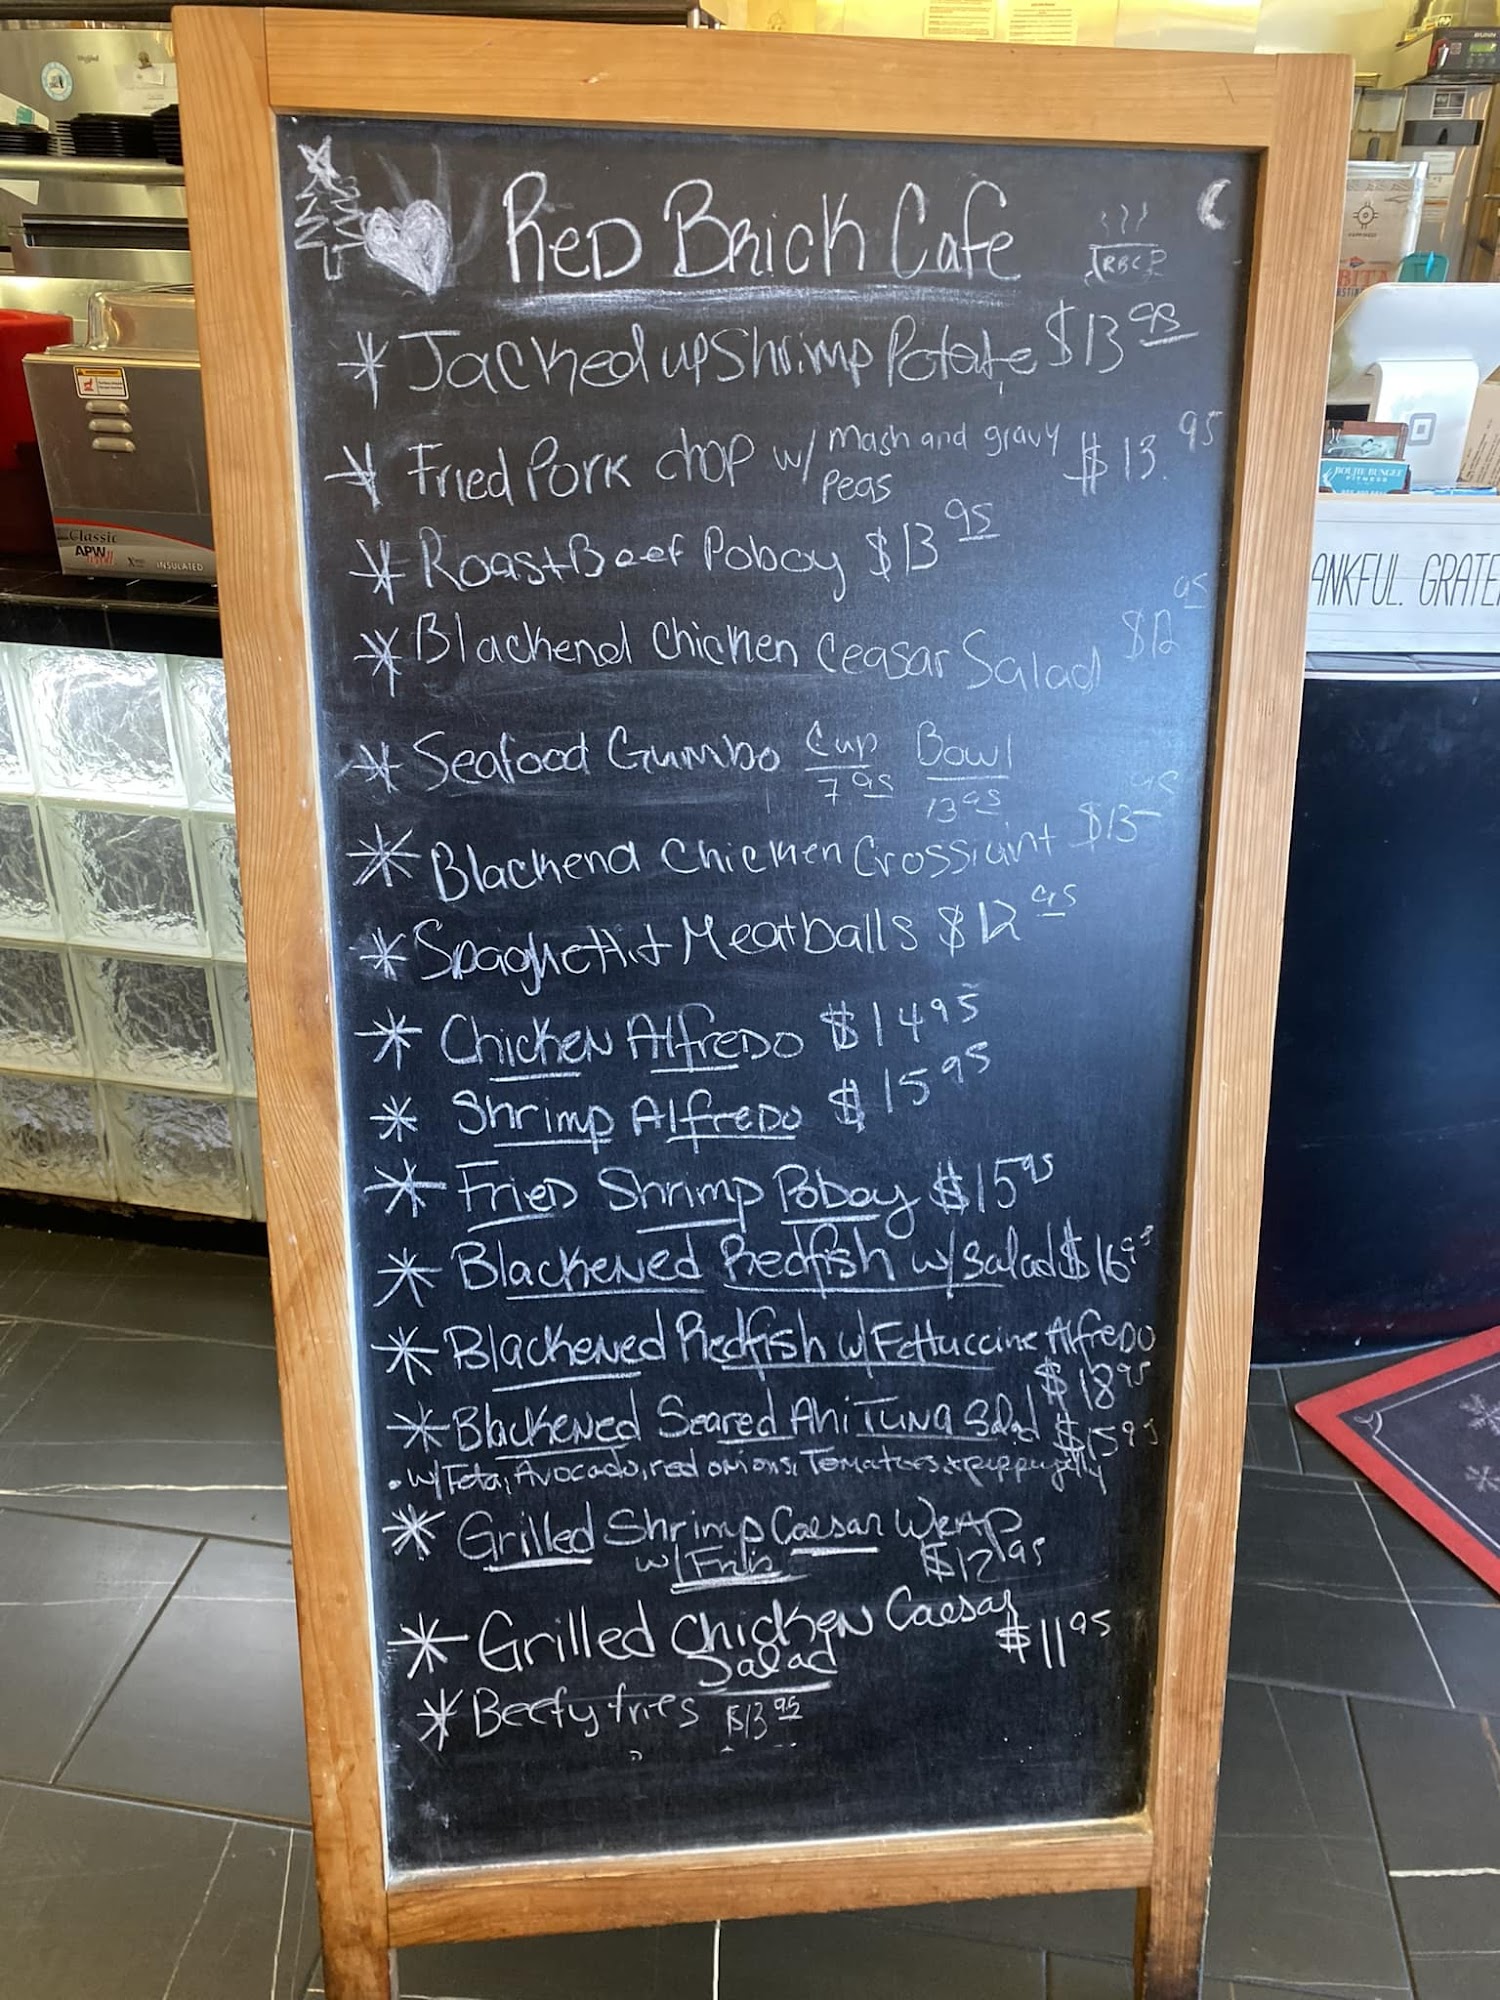 Red Brick Cafe
RBC
* Jacked up Shrimp Potato $13.95
* Fried Pork chop w/ mash and gravy $13.95
peas
* Roast Beef Poboy $13.95
* Blackend Chicken Ceasar Salad $12.95
* Seafood Gumbo Cup Bowl
7.95 13.95
* Blackend Chicken Crossiant $13.95
* Spaghetti + Meatballs $12.95
* Chicken Alfredo $14.95
* Shrimp Alfredo $15.95
* Fried Shrimp Poboy $15.95
* Blackened Redfish w/ Salad $16.95
* Blackened Redfish w/ Fettuccine Alfredo
$18.95
* Blackened Seared Ahi Tuna Salad $15.95
• w/ Feta, Avocado, red onions, Tomatoes
* Grilled Shrimp Caesar Wrap
w/ Fries $12.95
* Grilled Chicken Caesar
Salad $11.95
* Beefy fries $13.95
Classic
APW
INSULATED
BOUJIE BUNGEE
FITNESS
ANKFUL. GRATE
BUNN